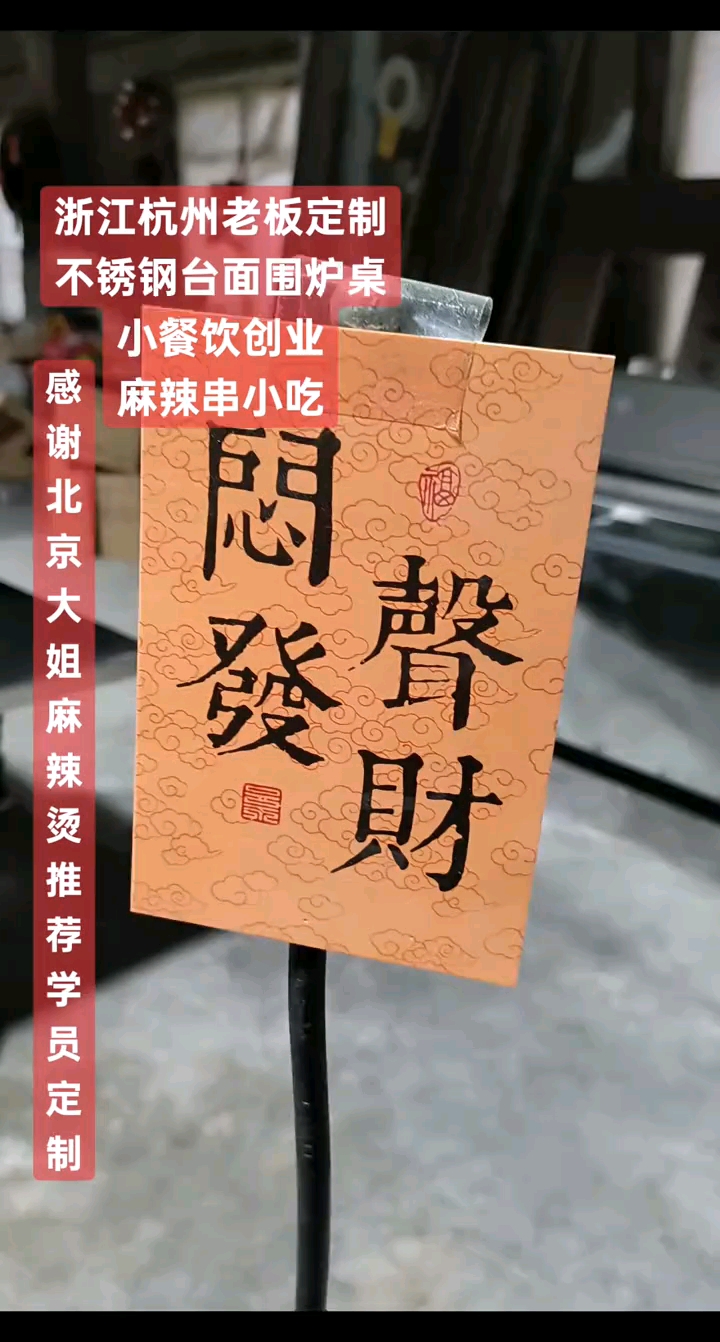 浙江杭州老板定制
不锈钢台面围炉桌
小餐饮创业
麻辣串小吃
感谢北京大姐麻辣烫推荐学员定制
悶聲
發財
福